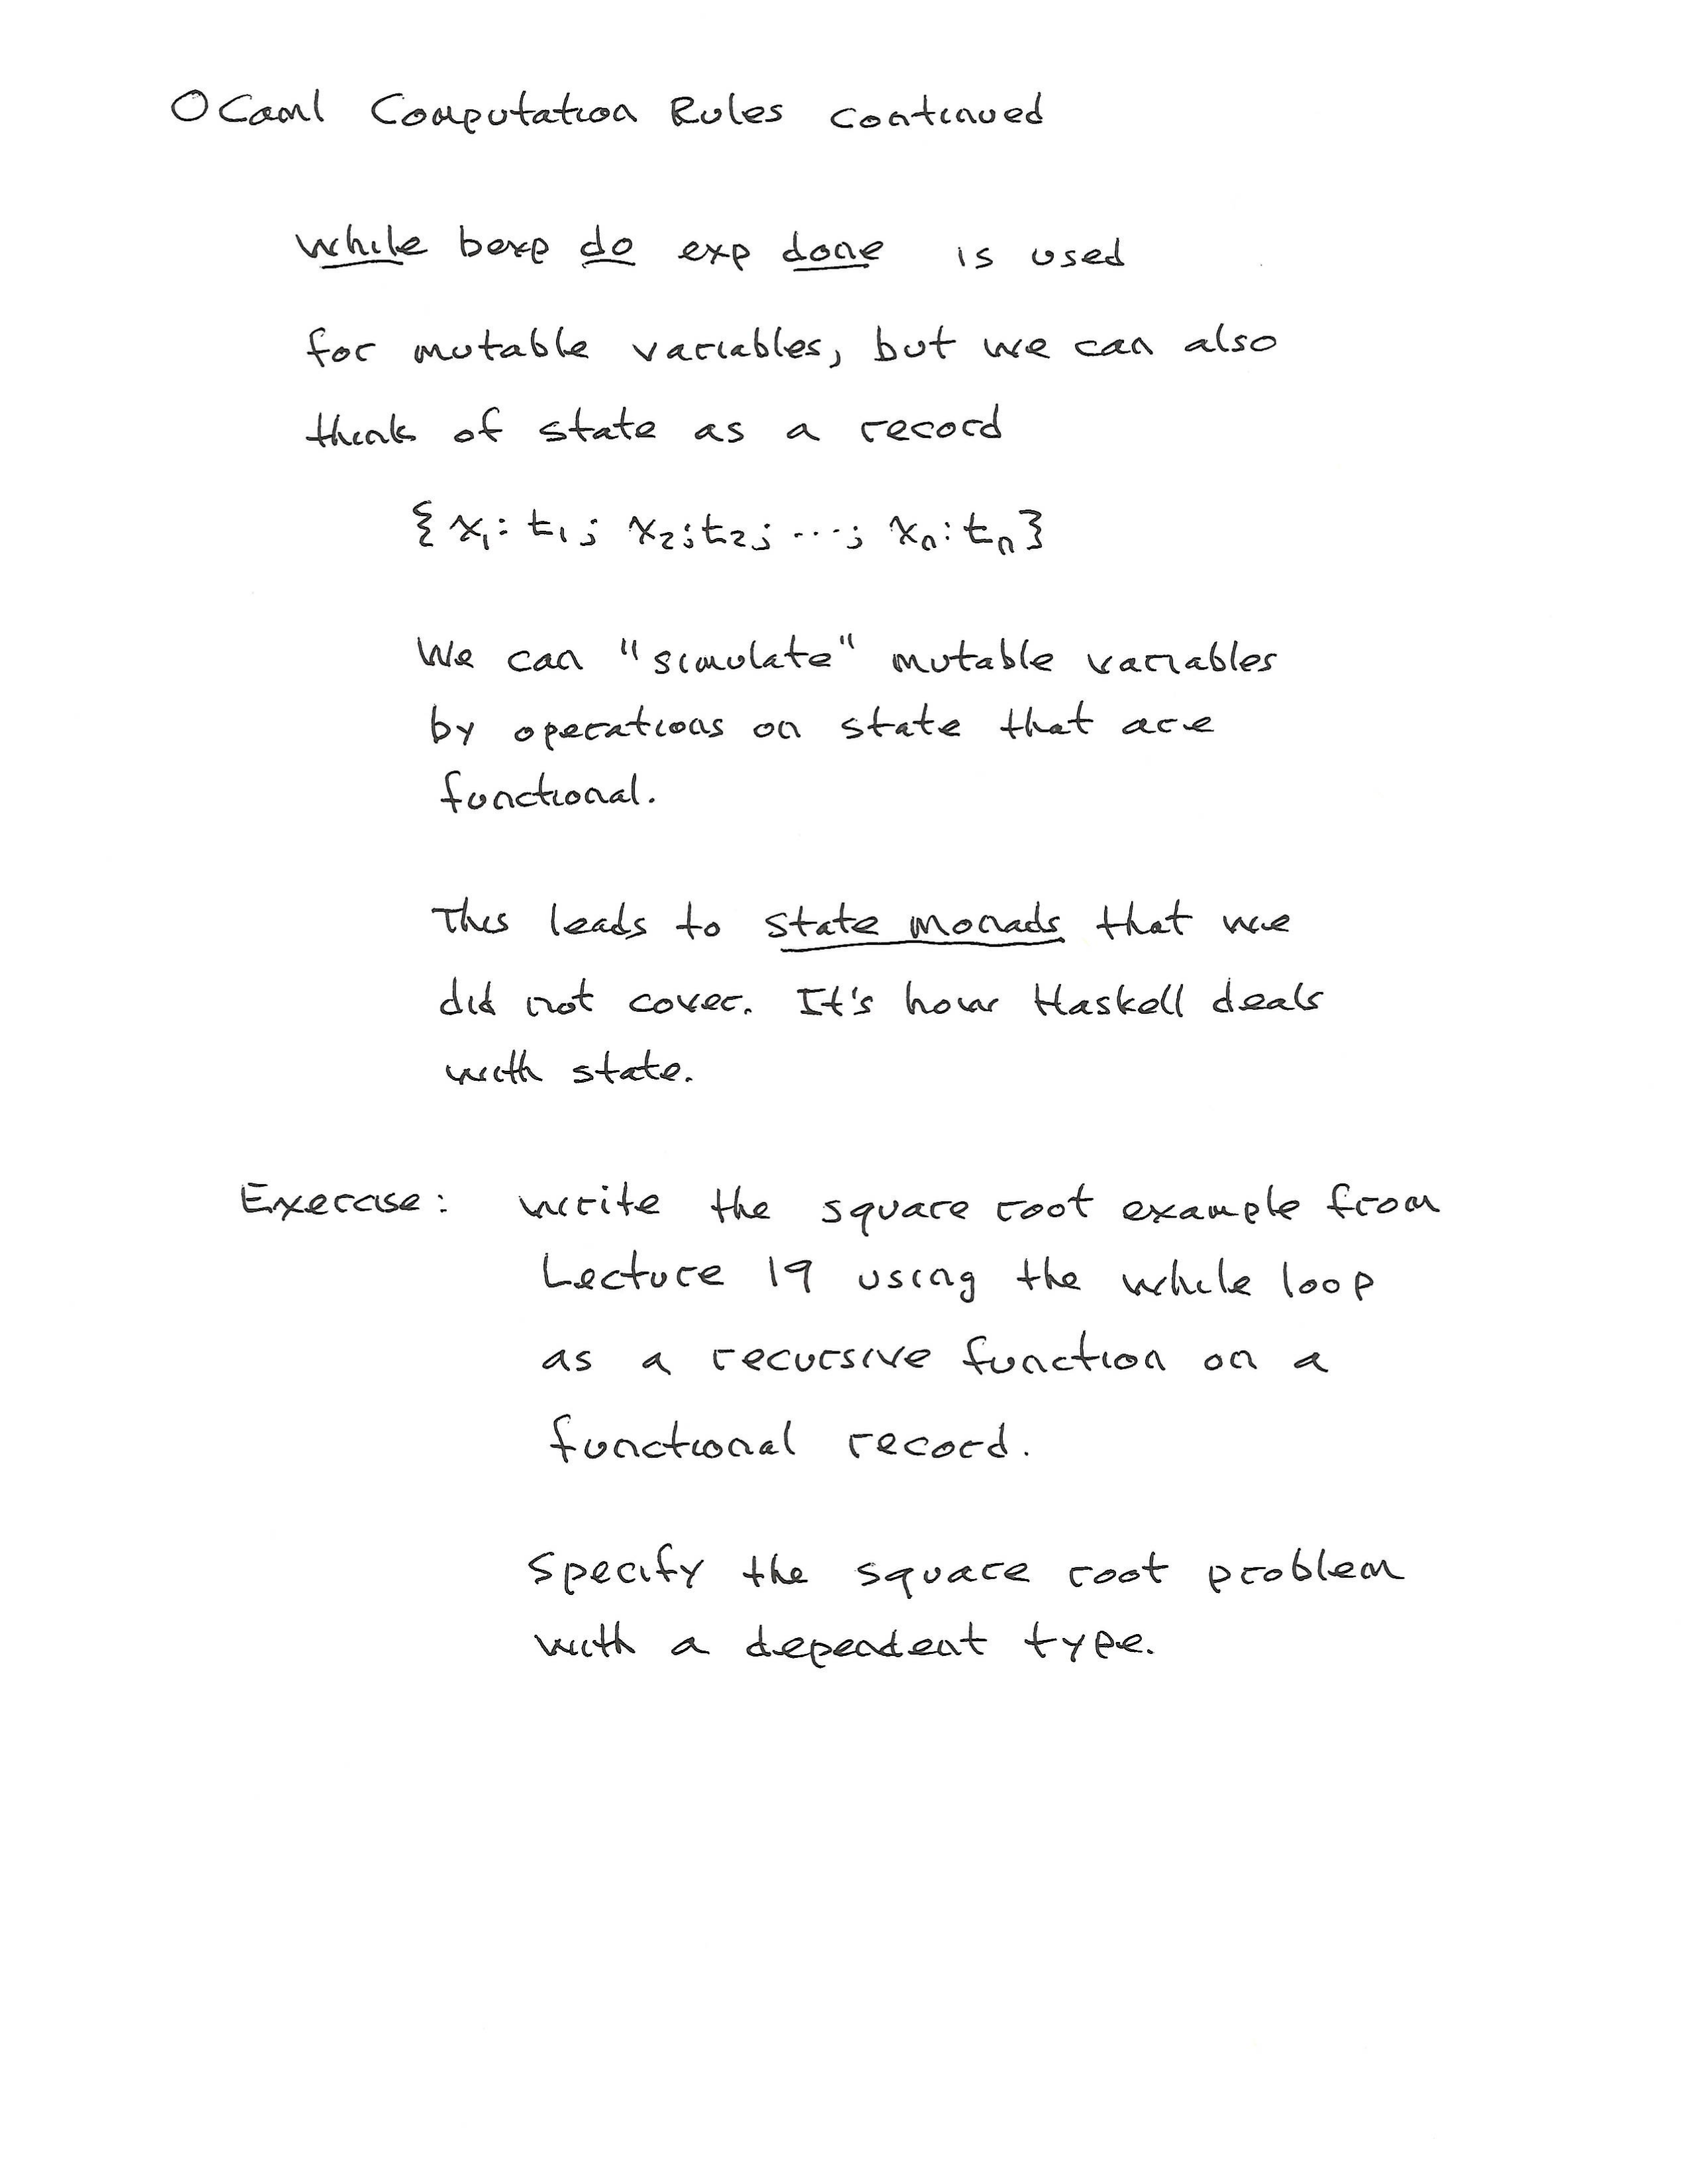 OCaml Computation Rules continued
while bexp do exp done is used
for mutable variables, but we can also
think of state as a record
{ x₁: t₁; x₂: t₂; ...; xₙ: tₙ}
We can "simulate" mutable variables
by operations on state that are
functional.
This leads to state monads that we
did not cover. It's how Haskell deals
with state.
Exercise: write the square root example from
Lecture 19 using the while loop
as a recursive function on a
functional record.
Specify the square root problem
with a dependent type.